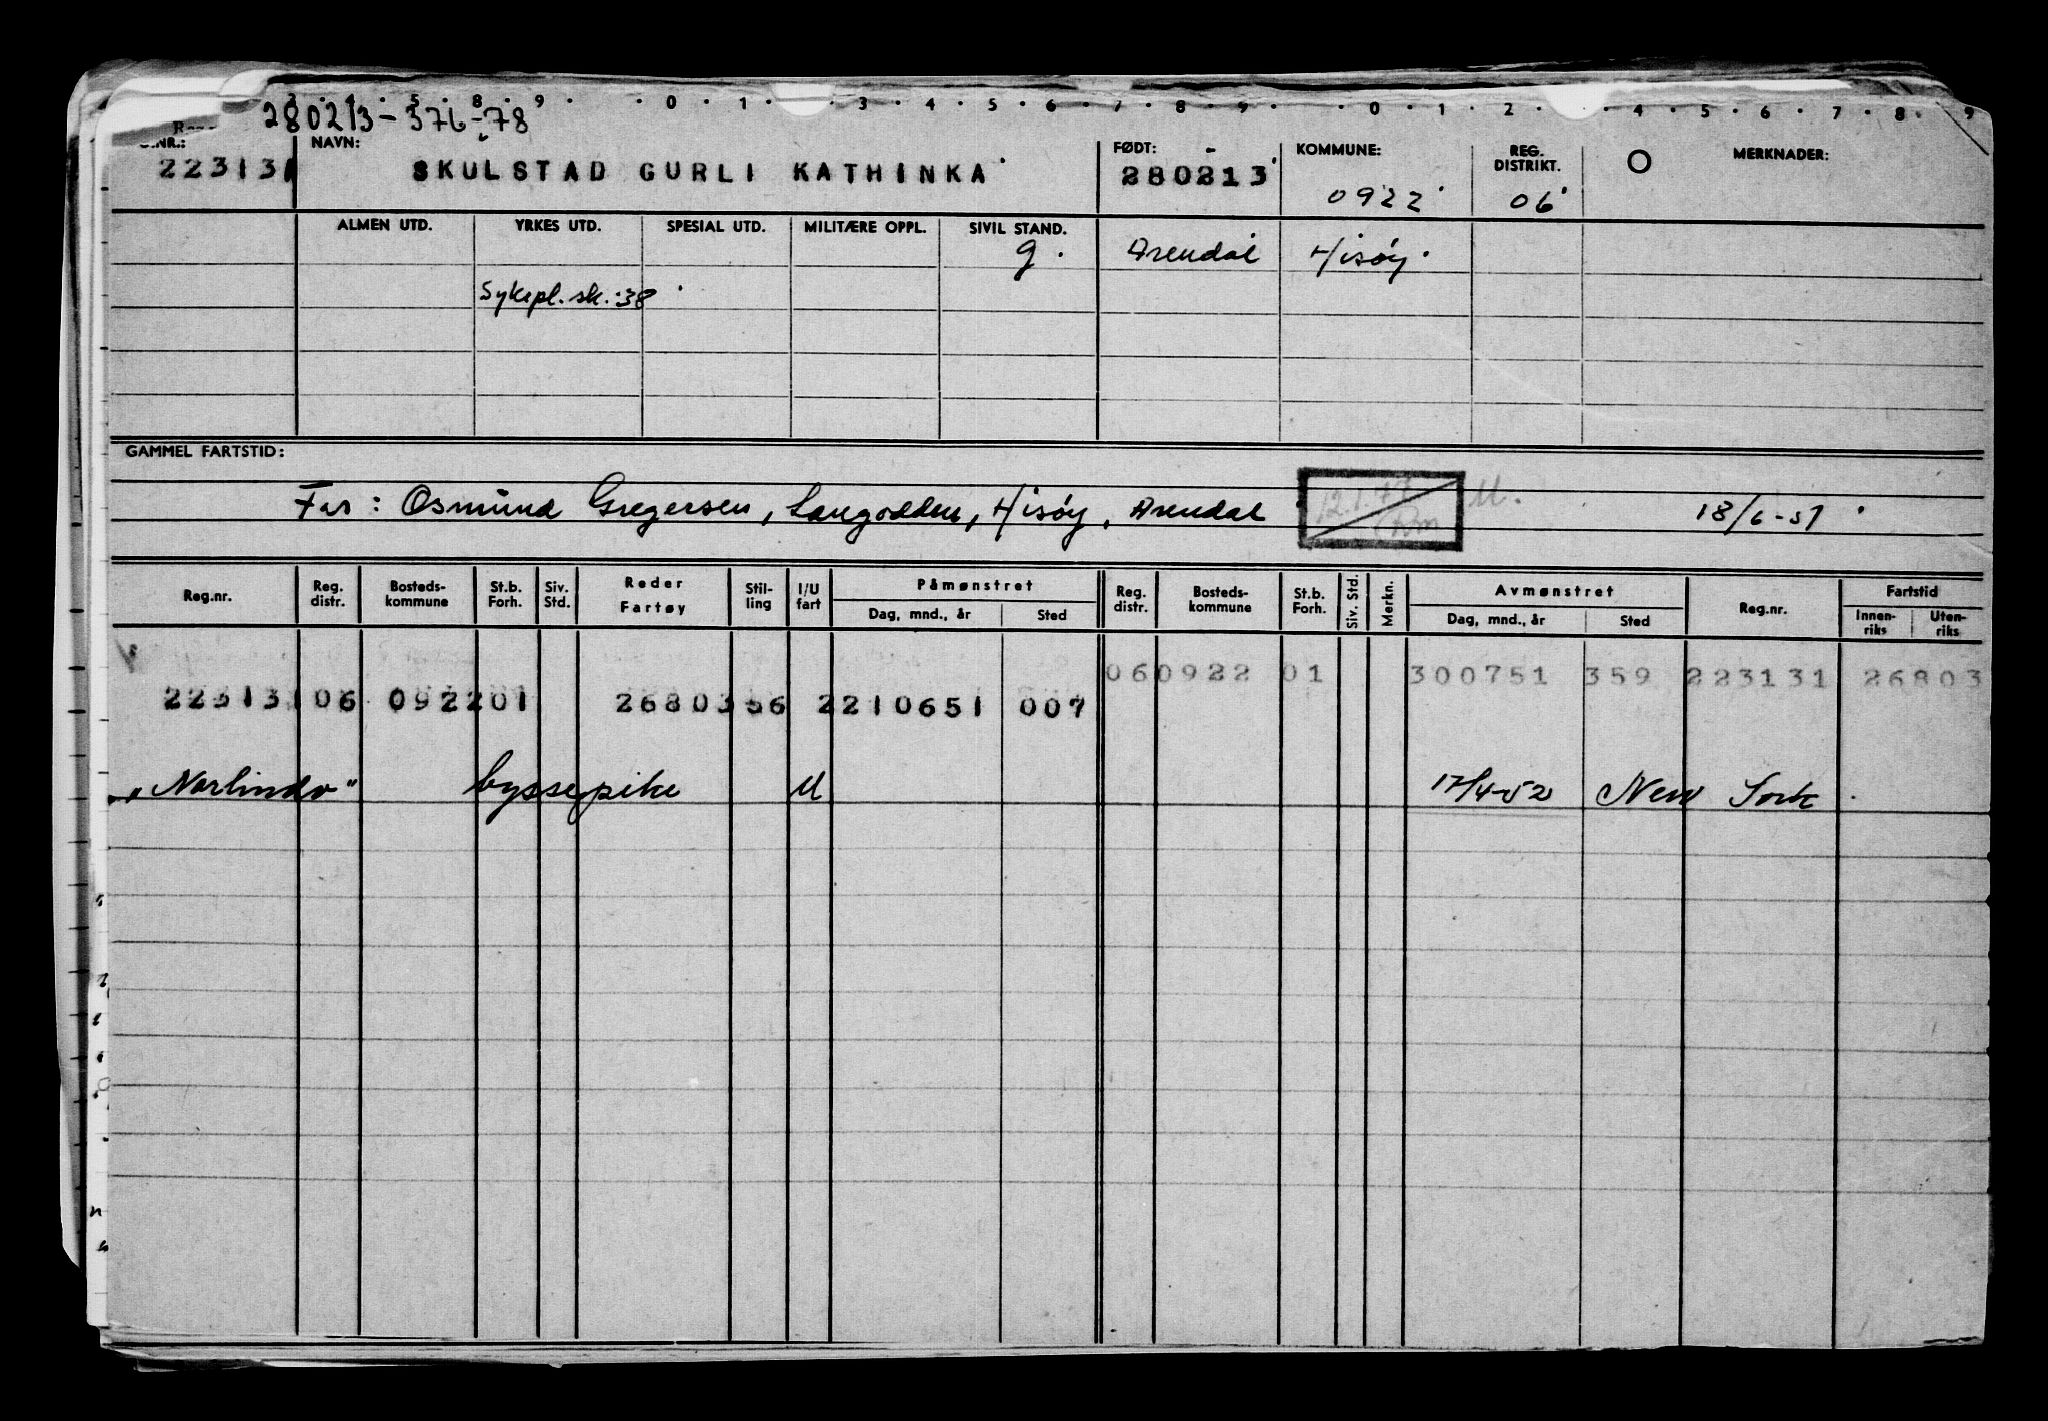 280213-376-78
3 . 4 . 5 . 6 . 7 . 8 . 9 . 0 . 1 . 2 . 3 . 4 . 5 . 6 . 7 . 8 . 9
NAVN: FØDT: KOMMUNE: REG. DISTRIKT. MERKNADER:
223131 SKULSTAD GURLI KATHINKA 280213 0922 06
ALMEN UTD. YRKES UTD. SPESIAL UTD. MILITÆRE OPPL. SIVIL STAND.
g. Arendal Hisøy
Sykepl. sk. :38
GAMMEL FARTSTID:
Far: Osmund Gregersen, Langodden, Hisøy, Arendal 12.1.77 M. 18/6-51
Reg.nr. Reg. distr. Bosteds- kommune St.b. Forh. Siv. Std. Reder Fartøy Stil- ling I/U fart Påmønstret Dag, mnd., år Sted Reg. distr. Bosteds- kommune St.b. Forh. Siv. Std. Merkn. Avmønstret Dag, mnd., år Sted Reg.nr. Fartstid Innen- riks Uten- riks
060922 01 300751 359 223131 26803
223131 06 092201 26803 56 2210651 007
"Norlindo" byssepike U 17/4-52 New York